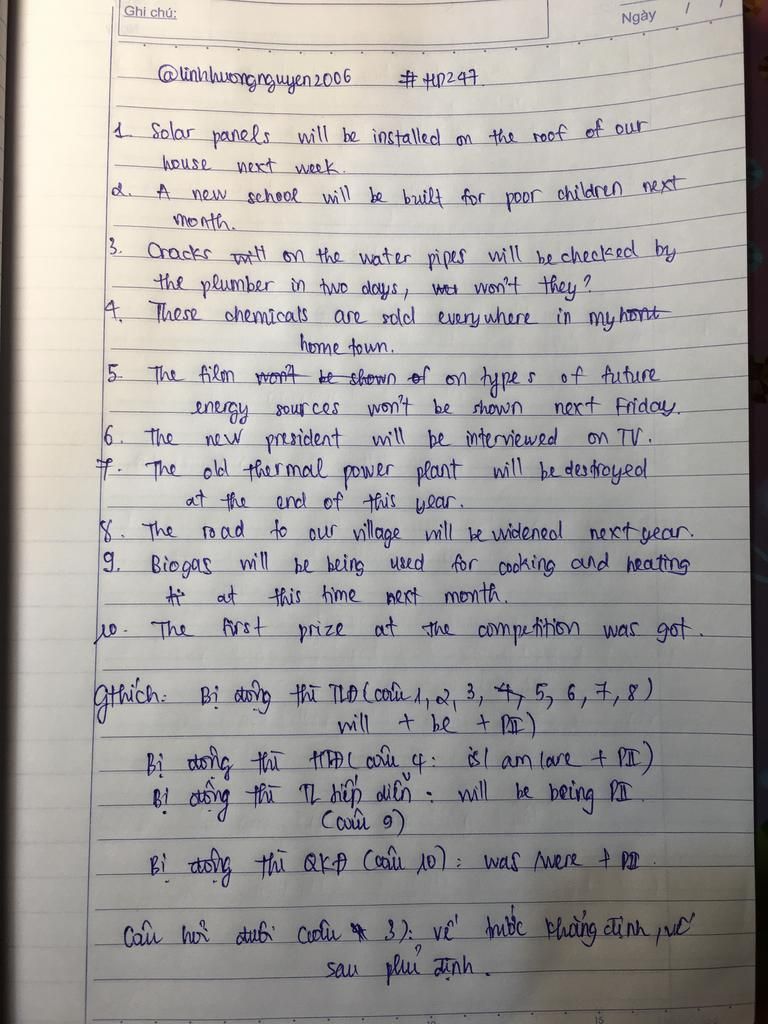 Ghi chú:
Ngày / /
@linhhuongnguyen2006 #HD247
1. Solar panels will be installed on the roof of our
house next week.
2. A new school will be built for poor children next
month.
3. Cracks will on the water pipes will be checked by
the plumber in two days, won't they?
4. These chemicals are sold everywhere in my
home town.
5. The film won't be shown of on types of future
energy sources won't be shown next Friday.
6. The new president will be interviewed on TV.
7. The old thermal power plant will be destroyed
at the end of this year.
8. The road to our village will be widened next year.
9. Biogas will be being used for cooking and heating
at this time next month.
10. The first prize at the competition was got.
Gthích: Bị động thì TLĐ (câu 1, 2, 3, 4, 5, 6, 7, 8)
will + be + PII)
Bị động thì HTĐ( câu 4: is/ am/are + PII)
Bị động thì TL tiếp diễn: will be being PII
(câu 9)
Bị động thì QKĐ (câu 10): was/were + PII.
Câu hỏi đuôi (câu 3): vế trước khẳng định, vế
sau phủ định.